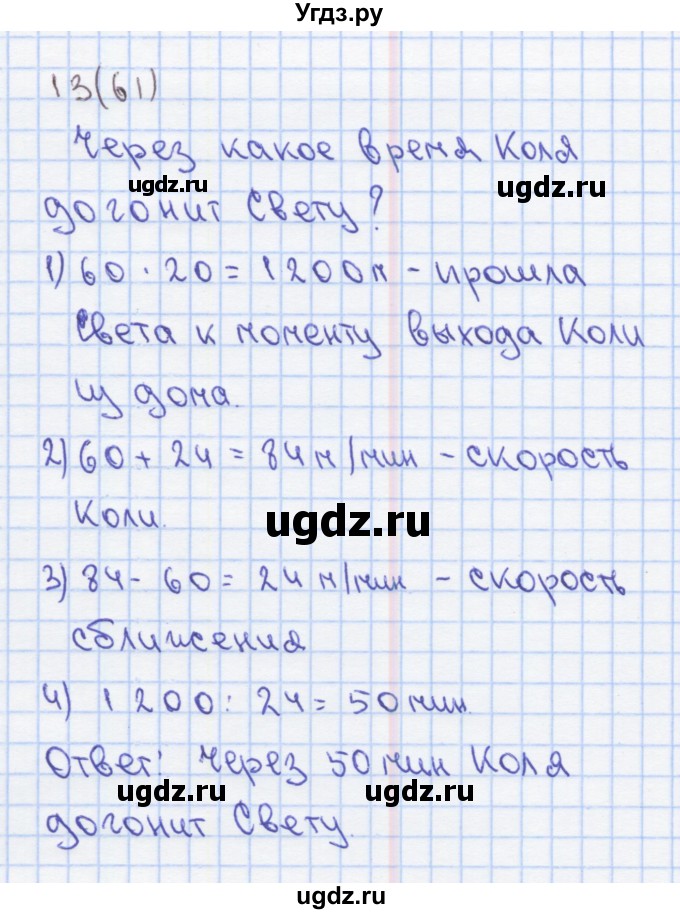 Угдз.ру
13(61)
Через какое время Коля
ugdz.ru
ugdz.ru
догонит Свету?
1) 60 · 20 = 1200м - прошла
Света к моменту выхода Коли
из дома.
2) 60 + 24 = 84 м/мин - скорость
Коли.
ugdz.ru
3) 84 - 60 = 24 м/мин - скорость
сближения
4) 1200 : 24 = 50 мин.
Ответ: через 50 мин Коля
ugdz.ru
ugdz.ru
догонит Свету.
ugdz.ru